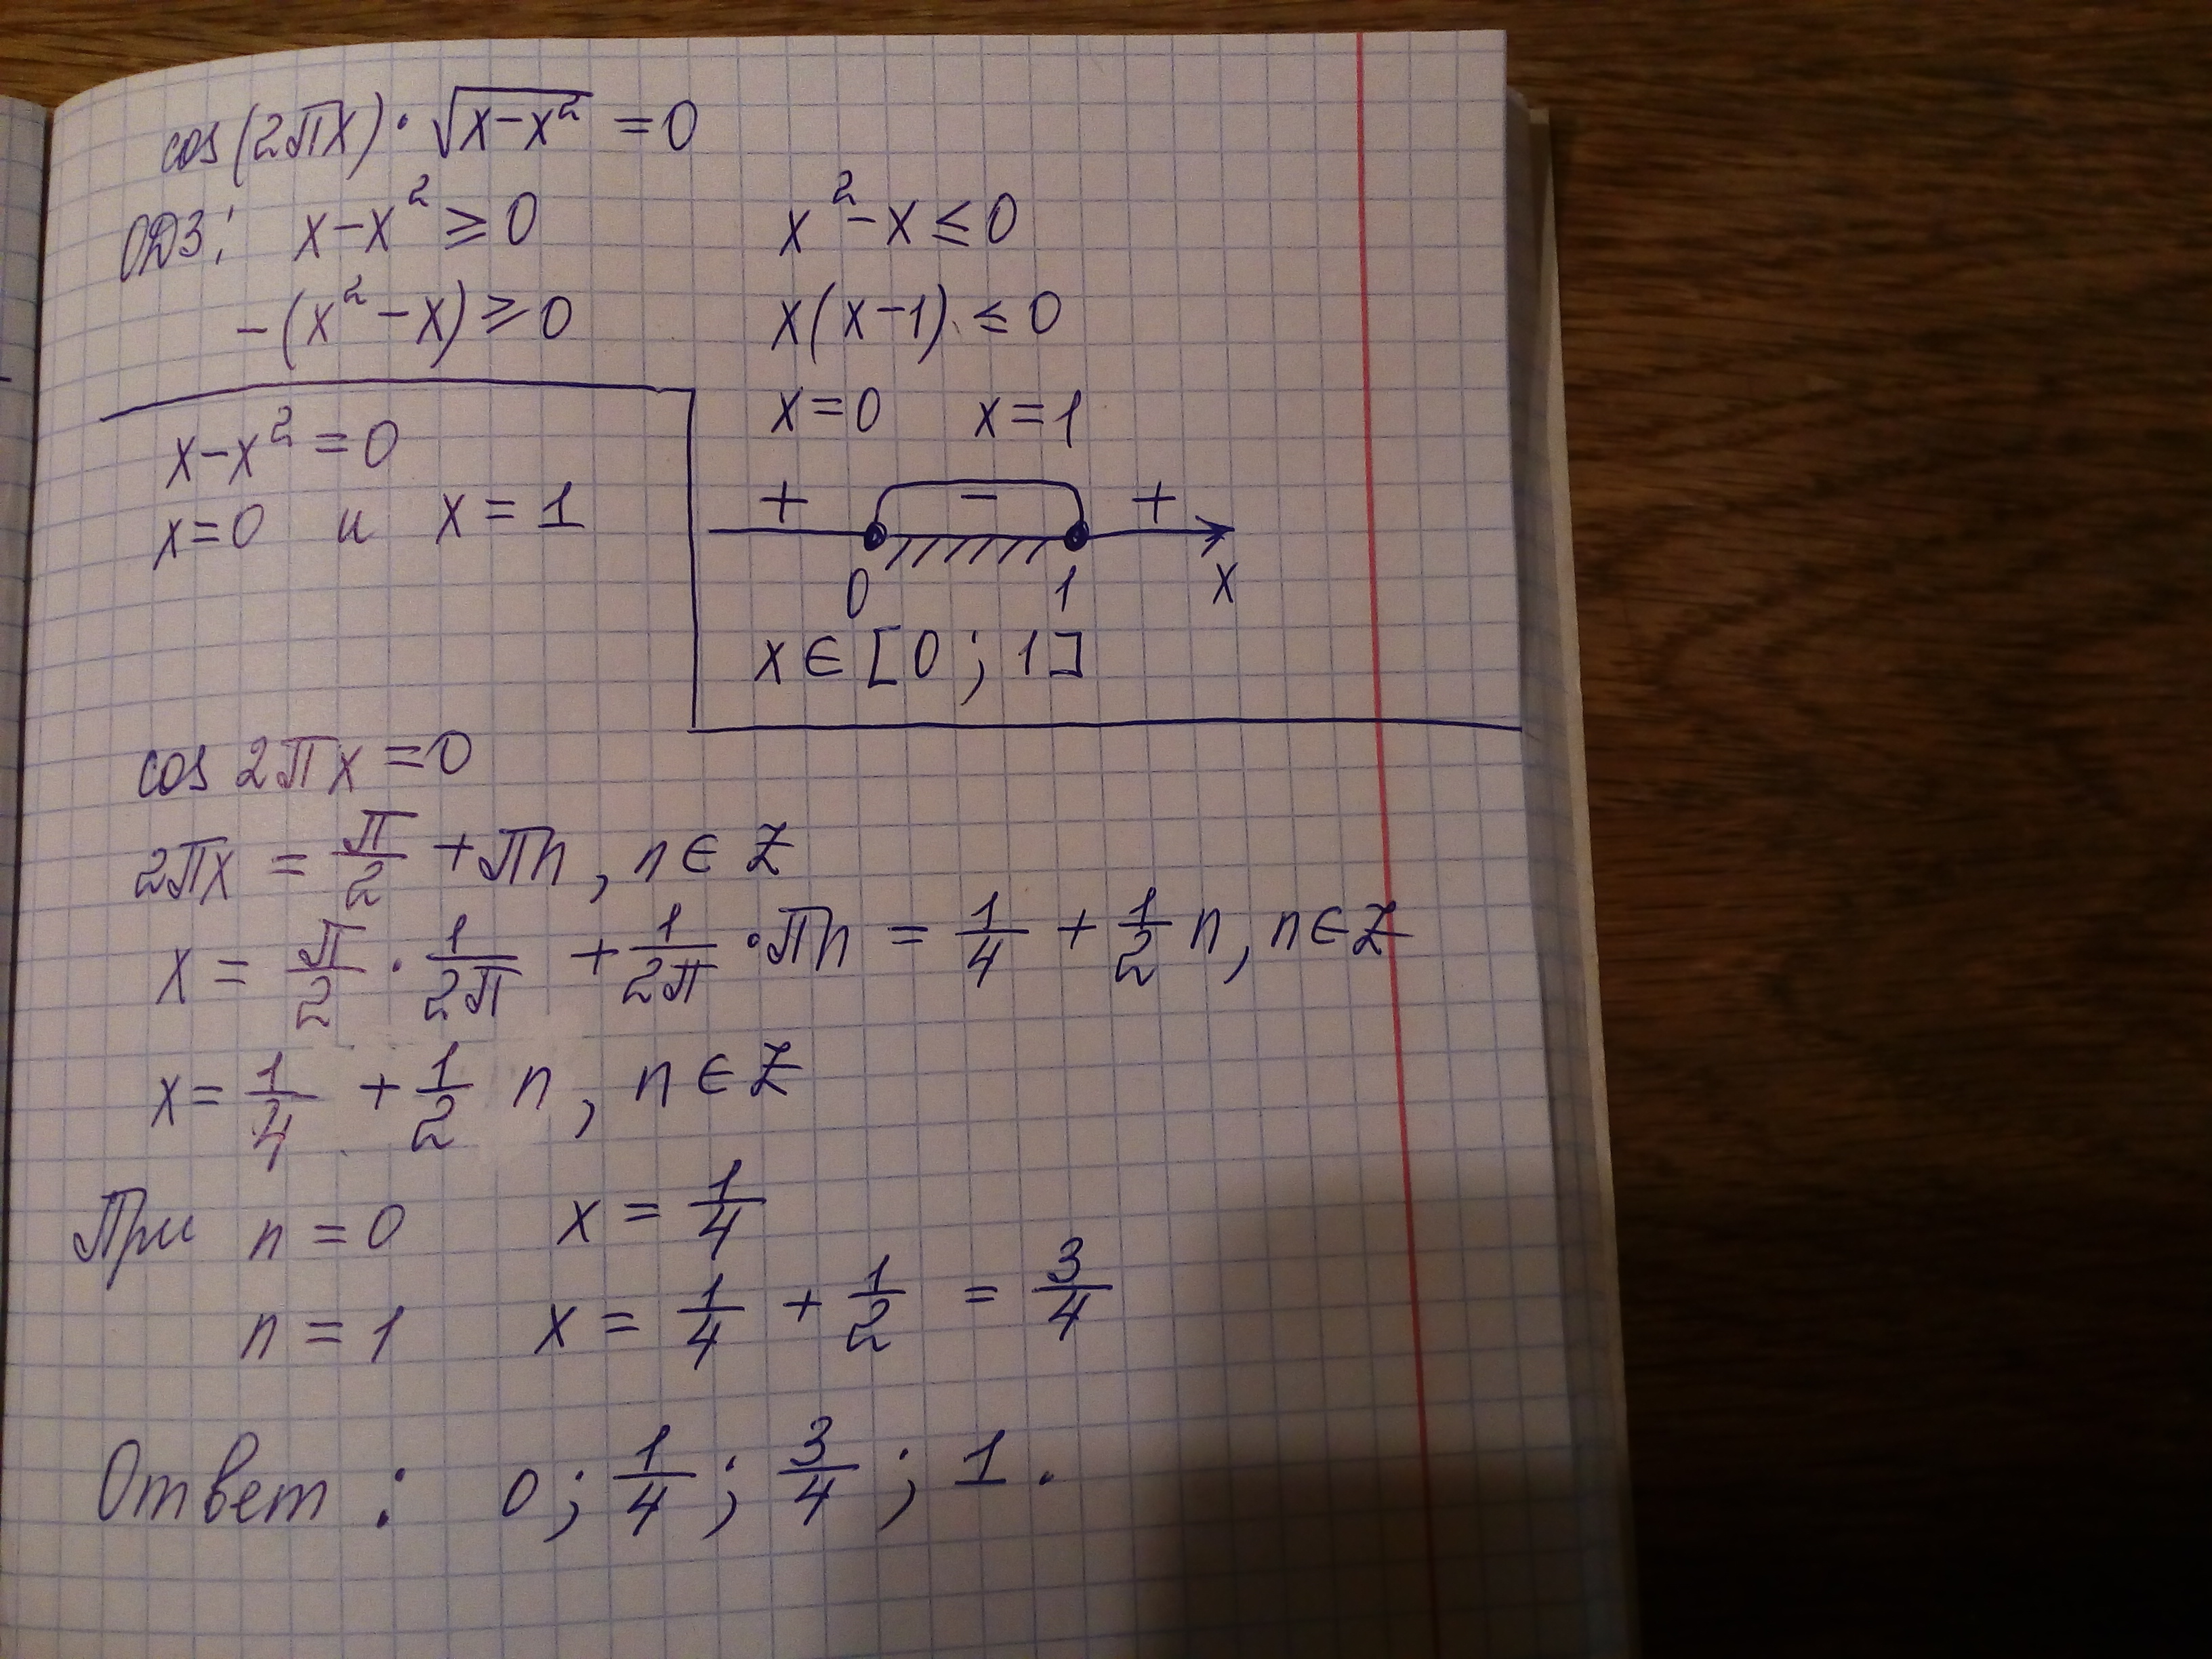 cos(2πx)·√(x−x²) = 0
ОДЗ: x−x² ≥ 0
−(x²−x) ≥ 0
x²−x ≤ 0
x(x−1) ≤ 0
x=0 x=1
+ − +
0 1 x
x ∈ [0; 1]
x−x² = 0
x=0 и x=1
cos 2πx = 0
2πx = π/2 + πn, n ∈ Z
x = π/2 · 1/2π + 1/2π · πn = 1/4 + 1/2 n, n ∈ Z
x = 1/4 + 1/2 n, n ∈ Z
При n = 0 x = 1/4
n = 1 x = 1/4 + 1/2 = 3/4
Ответ: 0; 1/4; 3/4; 1.